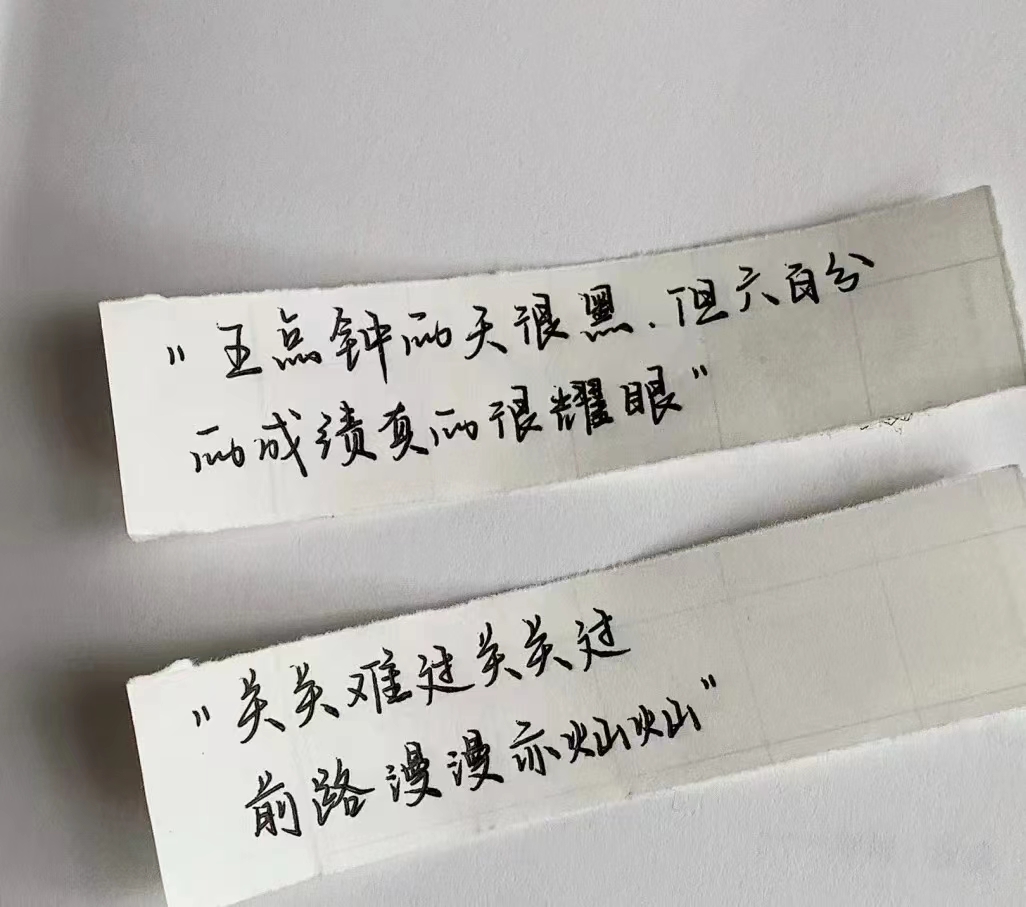 "五点钟的天很黑.但六百分
的成绩真的很耀眼"
"关关难过关关过
前路漫漫亦灿灿"